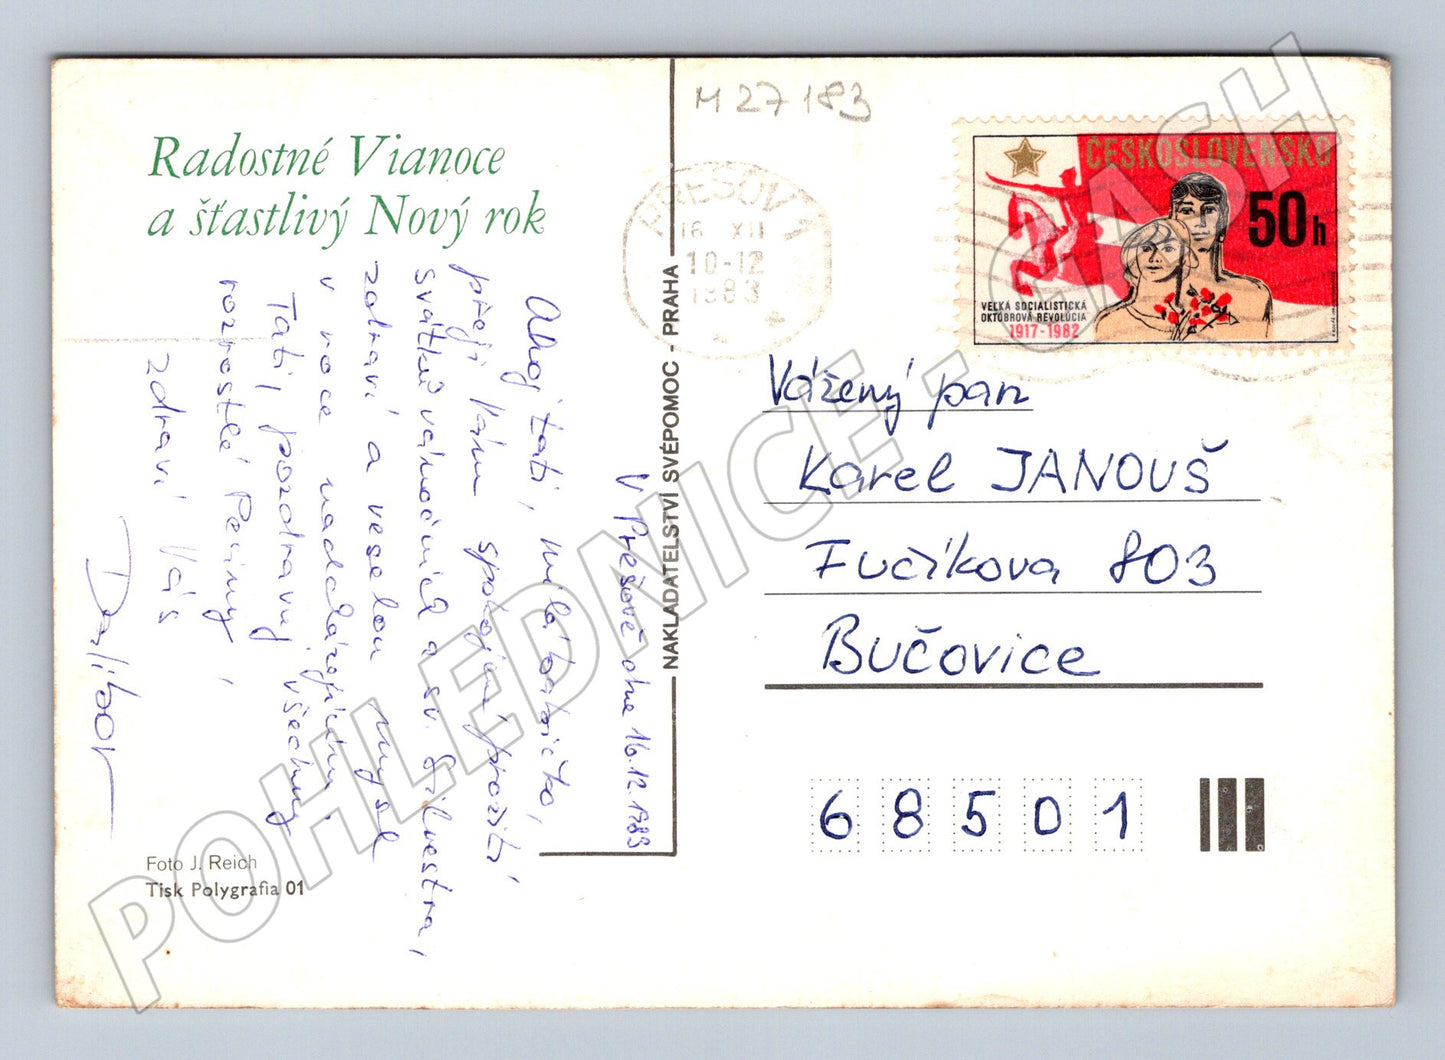 M 27183
Radostné Vianoce
a šťastlivý Nový rok
PREŠOV 1
16 XII
10-12
1983
ČESKOSLOVENSKO
50h
VEĽKÁ SOCIALISTICKÁ
OKTÓBROVÁ REVOLÚCIA
1917-1982
NAKLADATELSTVÍ SVÉPOMOC - PRAHA
V Prešově dne 16.12.1983
Ahoj tati, milá babičko,
přeji Vám spokojené prožití
svátků vánočních a sv. Silvestra,
zdraví a veselou mysl
v roce nadcházejícím.
Tati, pozdravuj všechny
rozrostlé Peciny,
zdraví Vás
Dalibor
Vážený pan
Karel JANOUŠ
Fučíkova 803
Bučovice
68501
Foto J. Reich
Tisk Polygrafia 01
POHLEDNICE - CASH